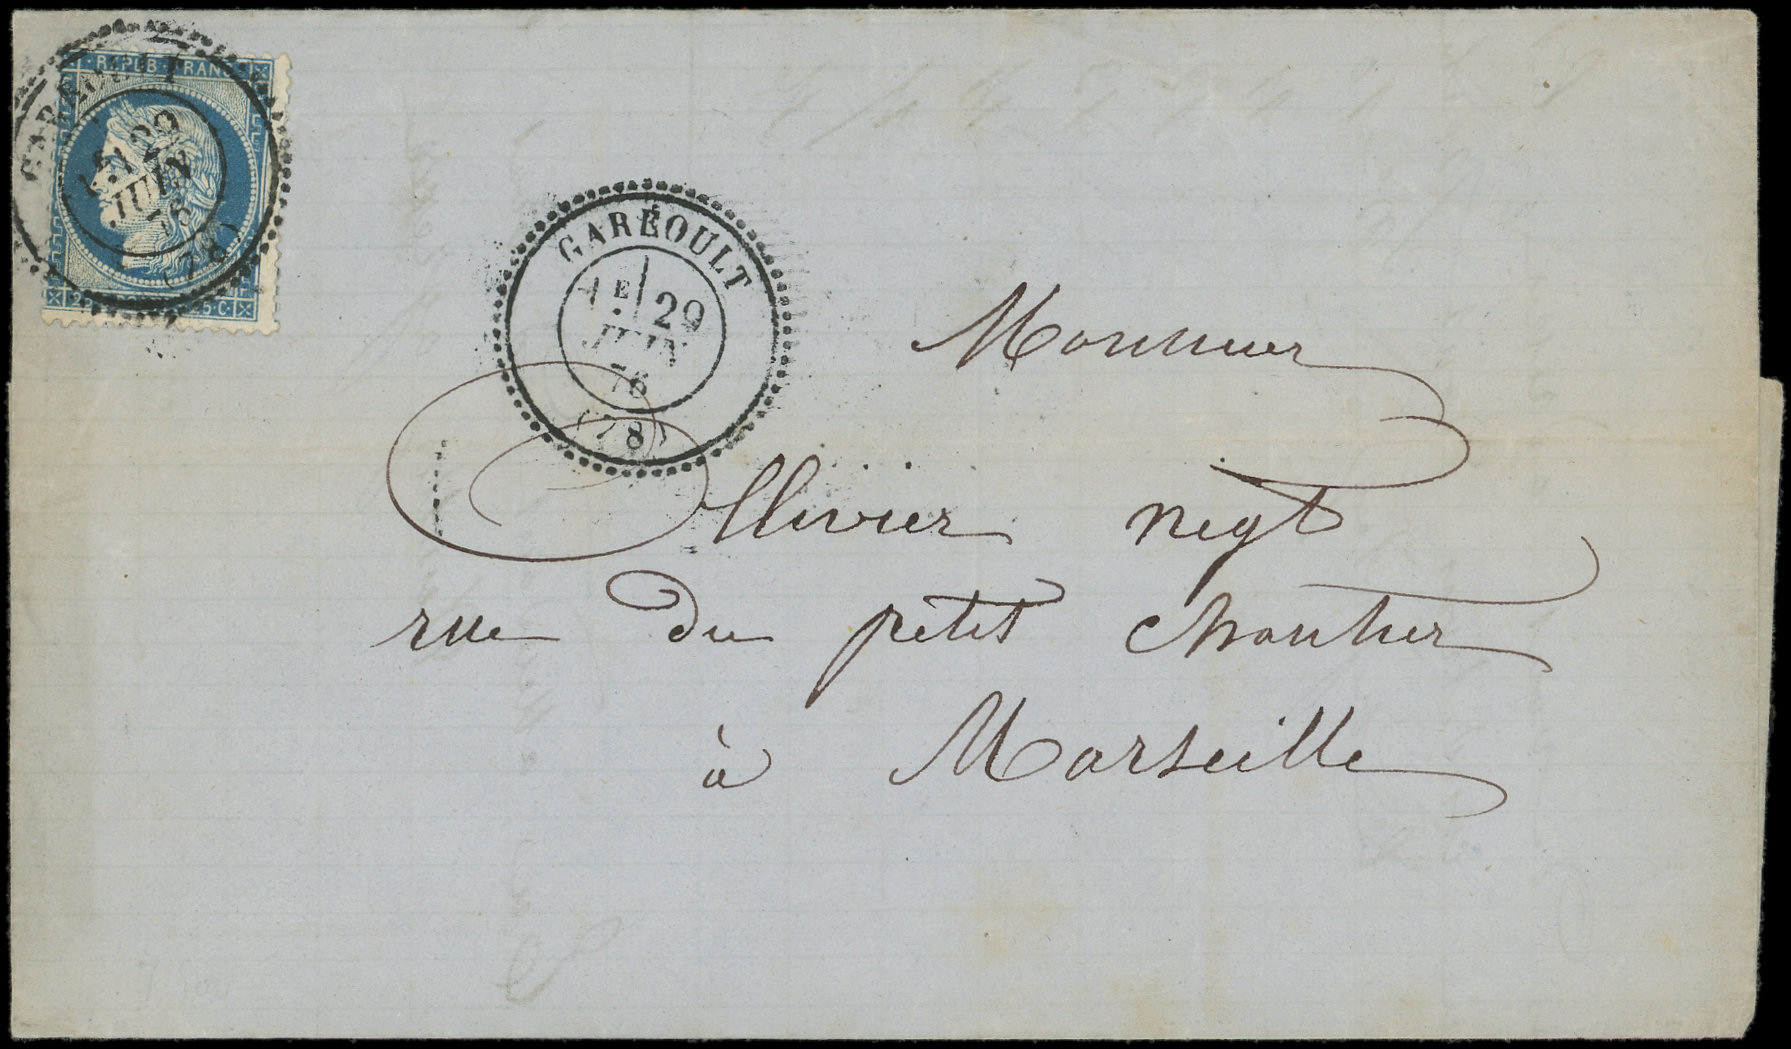 REPUB FRANC
GAREOULT
29
JUIN
76
(78)
25·C·
GARÉOULT
1E 29
JUIN
76
(78)
Monsieur
Ollivier negt
rue du petit chantier
à Marseille